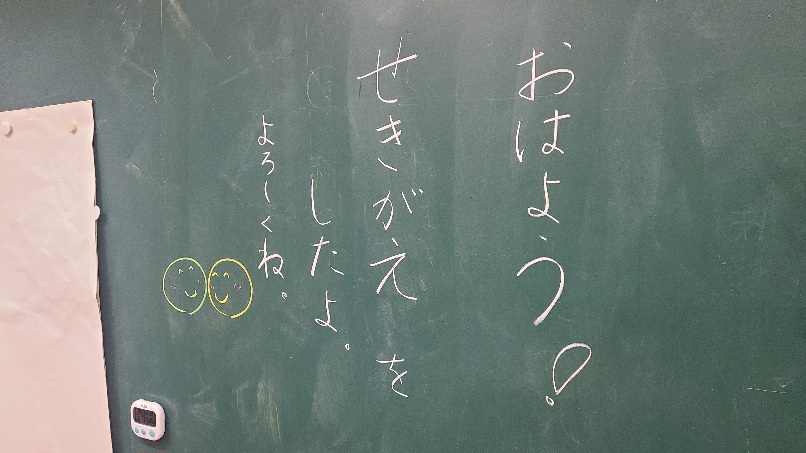 おはよう!
せきがえを
したよ。
よろしくね。